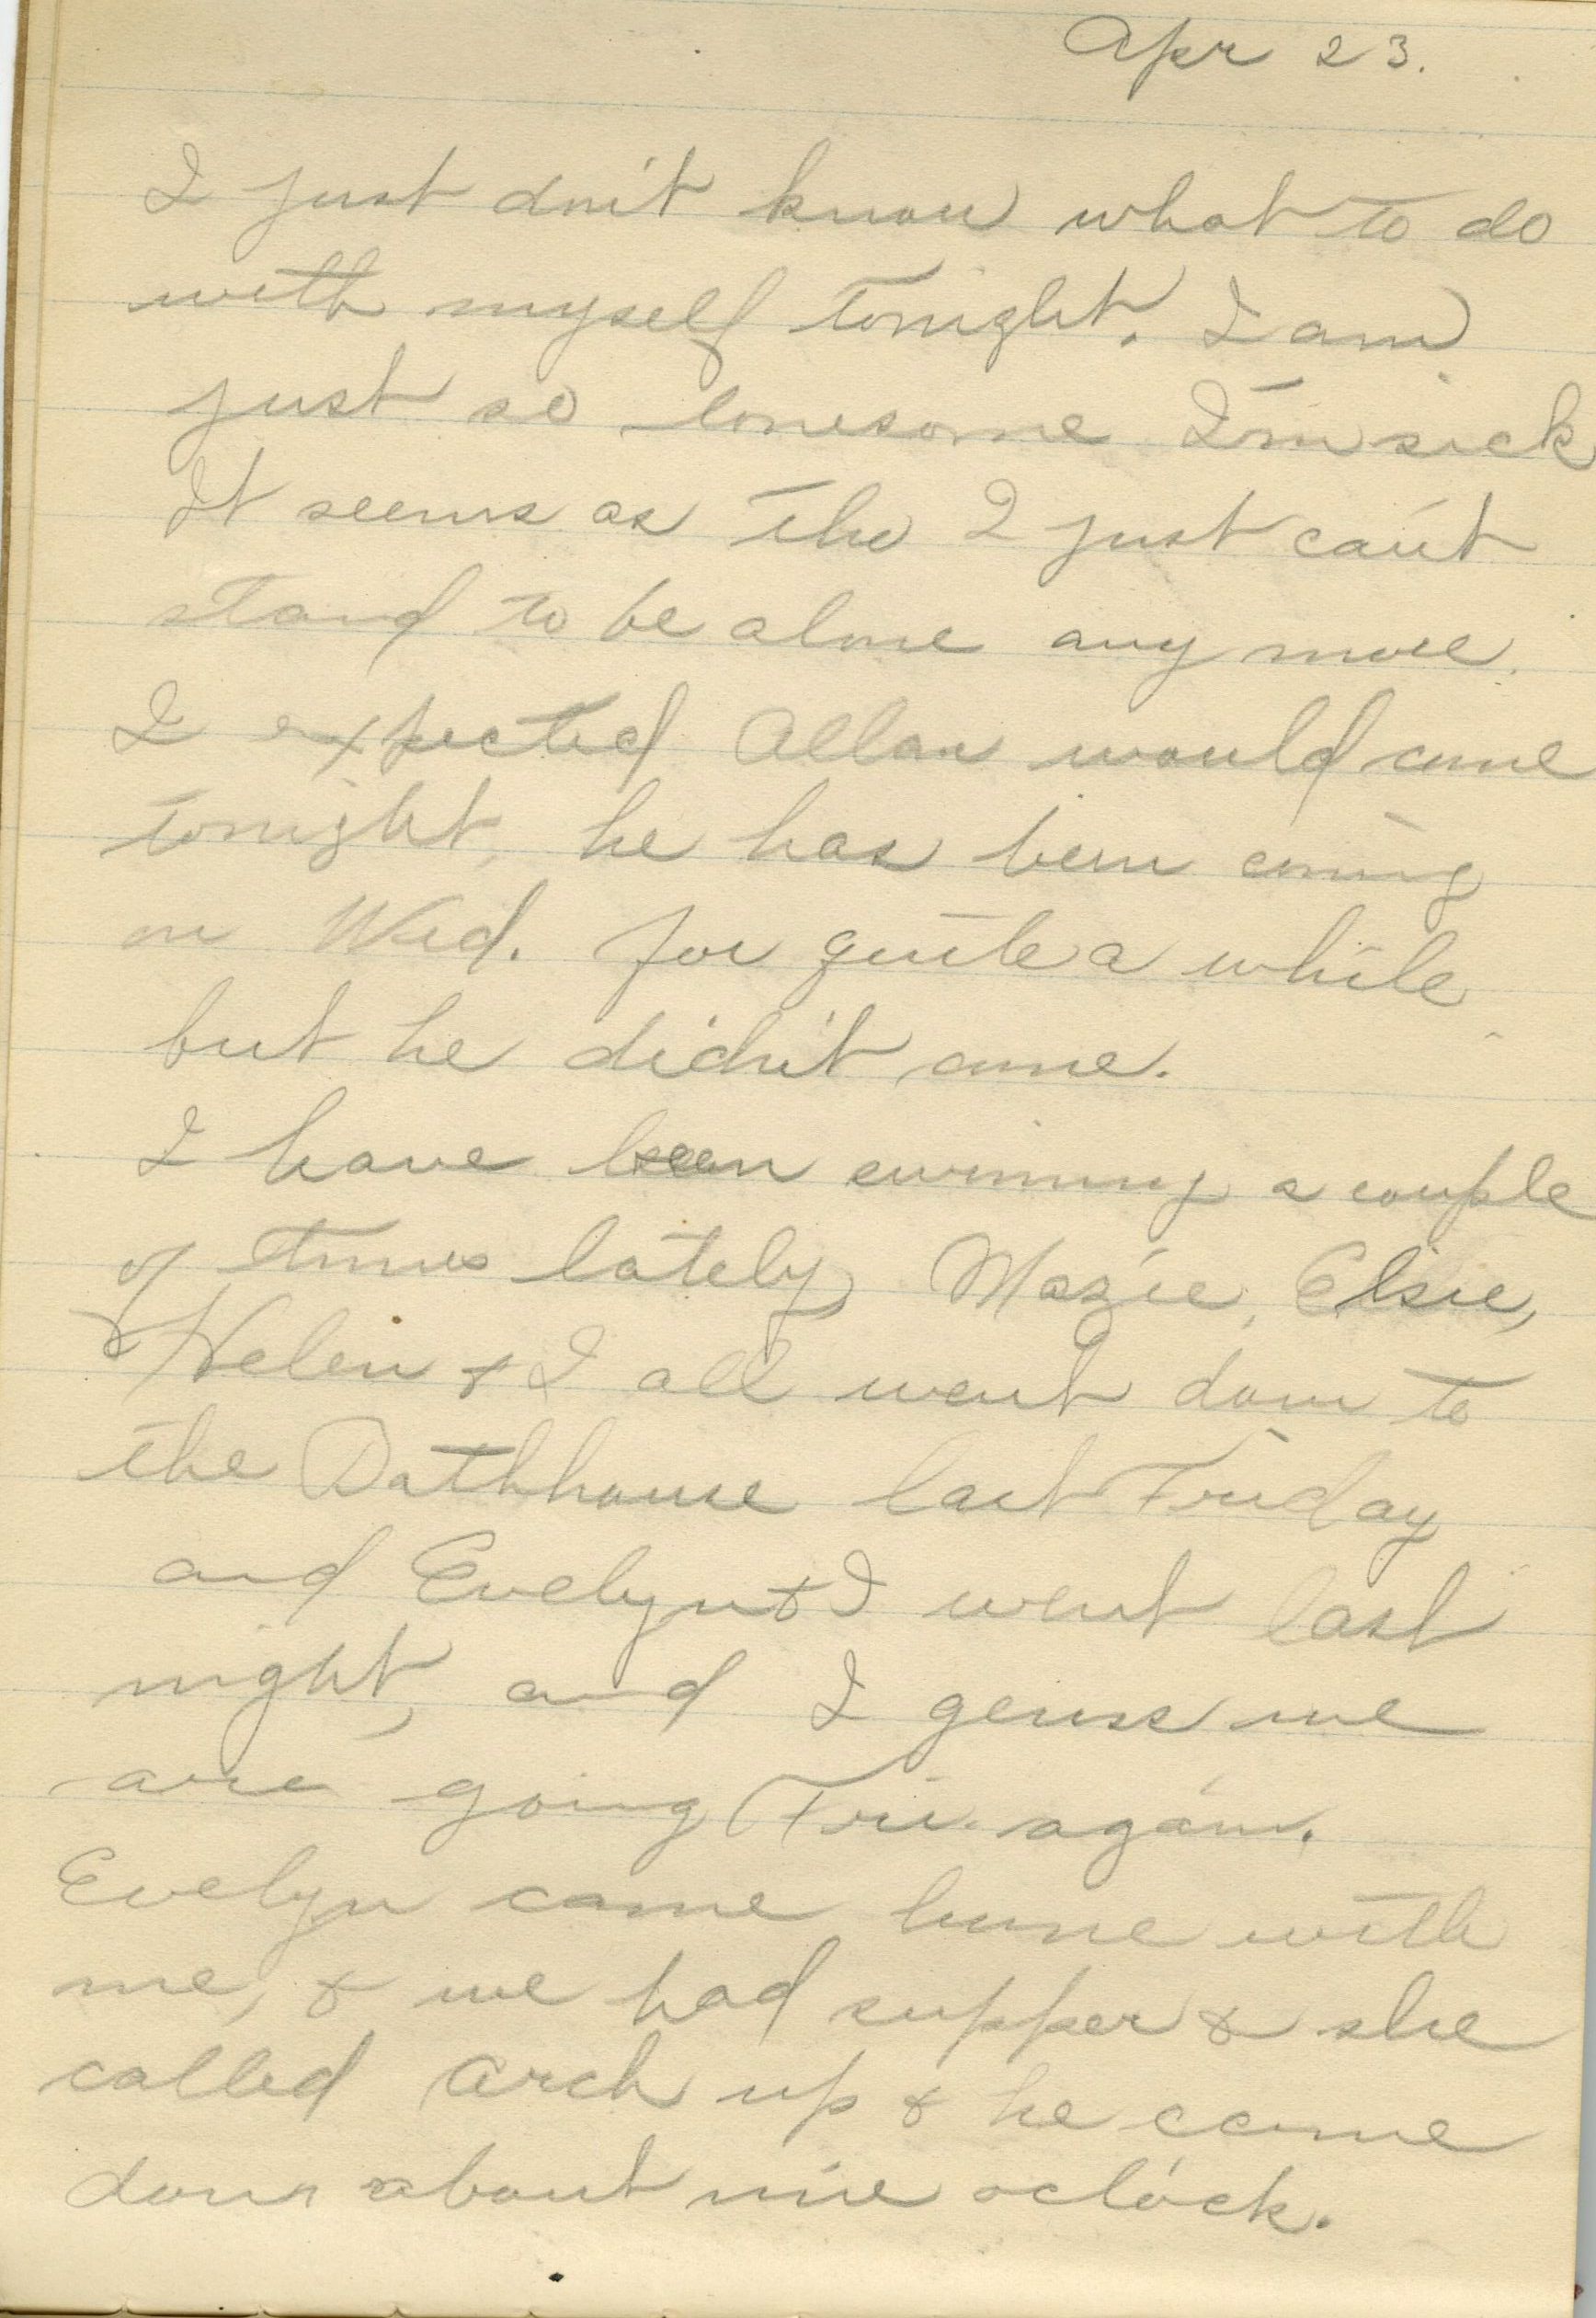 Apr 23.
I just don't know what to do
with myself tonight. I am
just so lonesome I'm sick
It seems as tho I just can't
stand to be alone any more.
I expected Allan would come
tonight, he has been coming
on Wed. for quite a while
but he didn't come.
I have been swimming a couple
of times lately, Mazie, Elsie,
& Helen & I all went down to
the Bathhouse last Friday
and Evelyn & I went last
night, and I guess we
are going Fri. again.
Evelyn came home with
me, & we had supper & she
called Arch up & he came
down about nine o'clock.